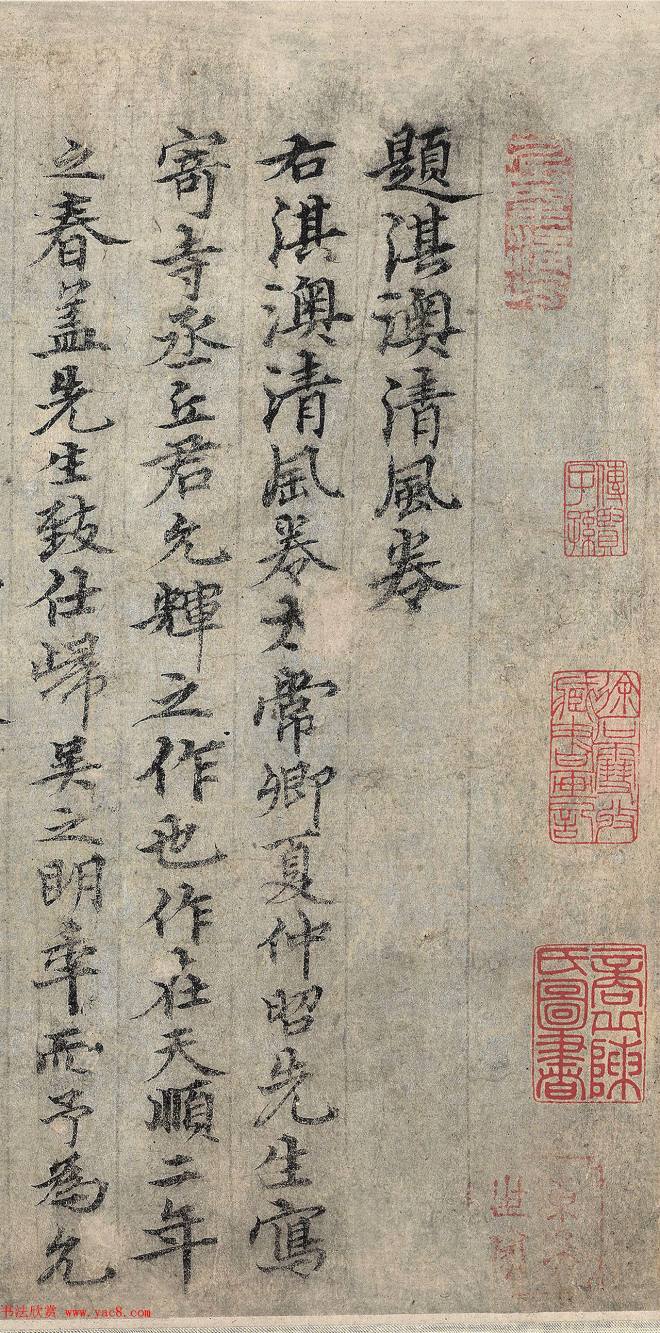 題淇澳清風卷
右淇澳清風卷太常卿夏仲昭先生寫
寄寺丞丘君允輝之作也作在天順二年
之春蓋先生致仕歸吴之明年而予為允
傳賢子孫
書法欣赏 www.yac8.com